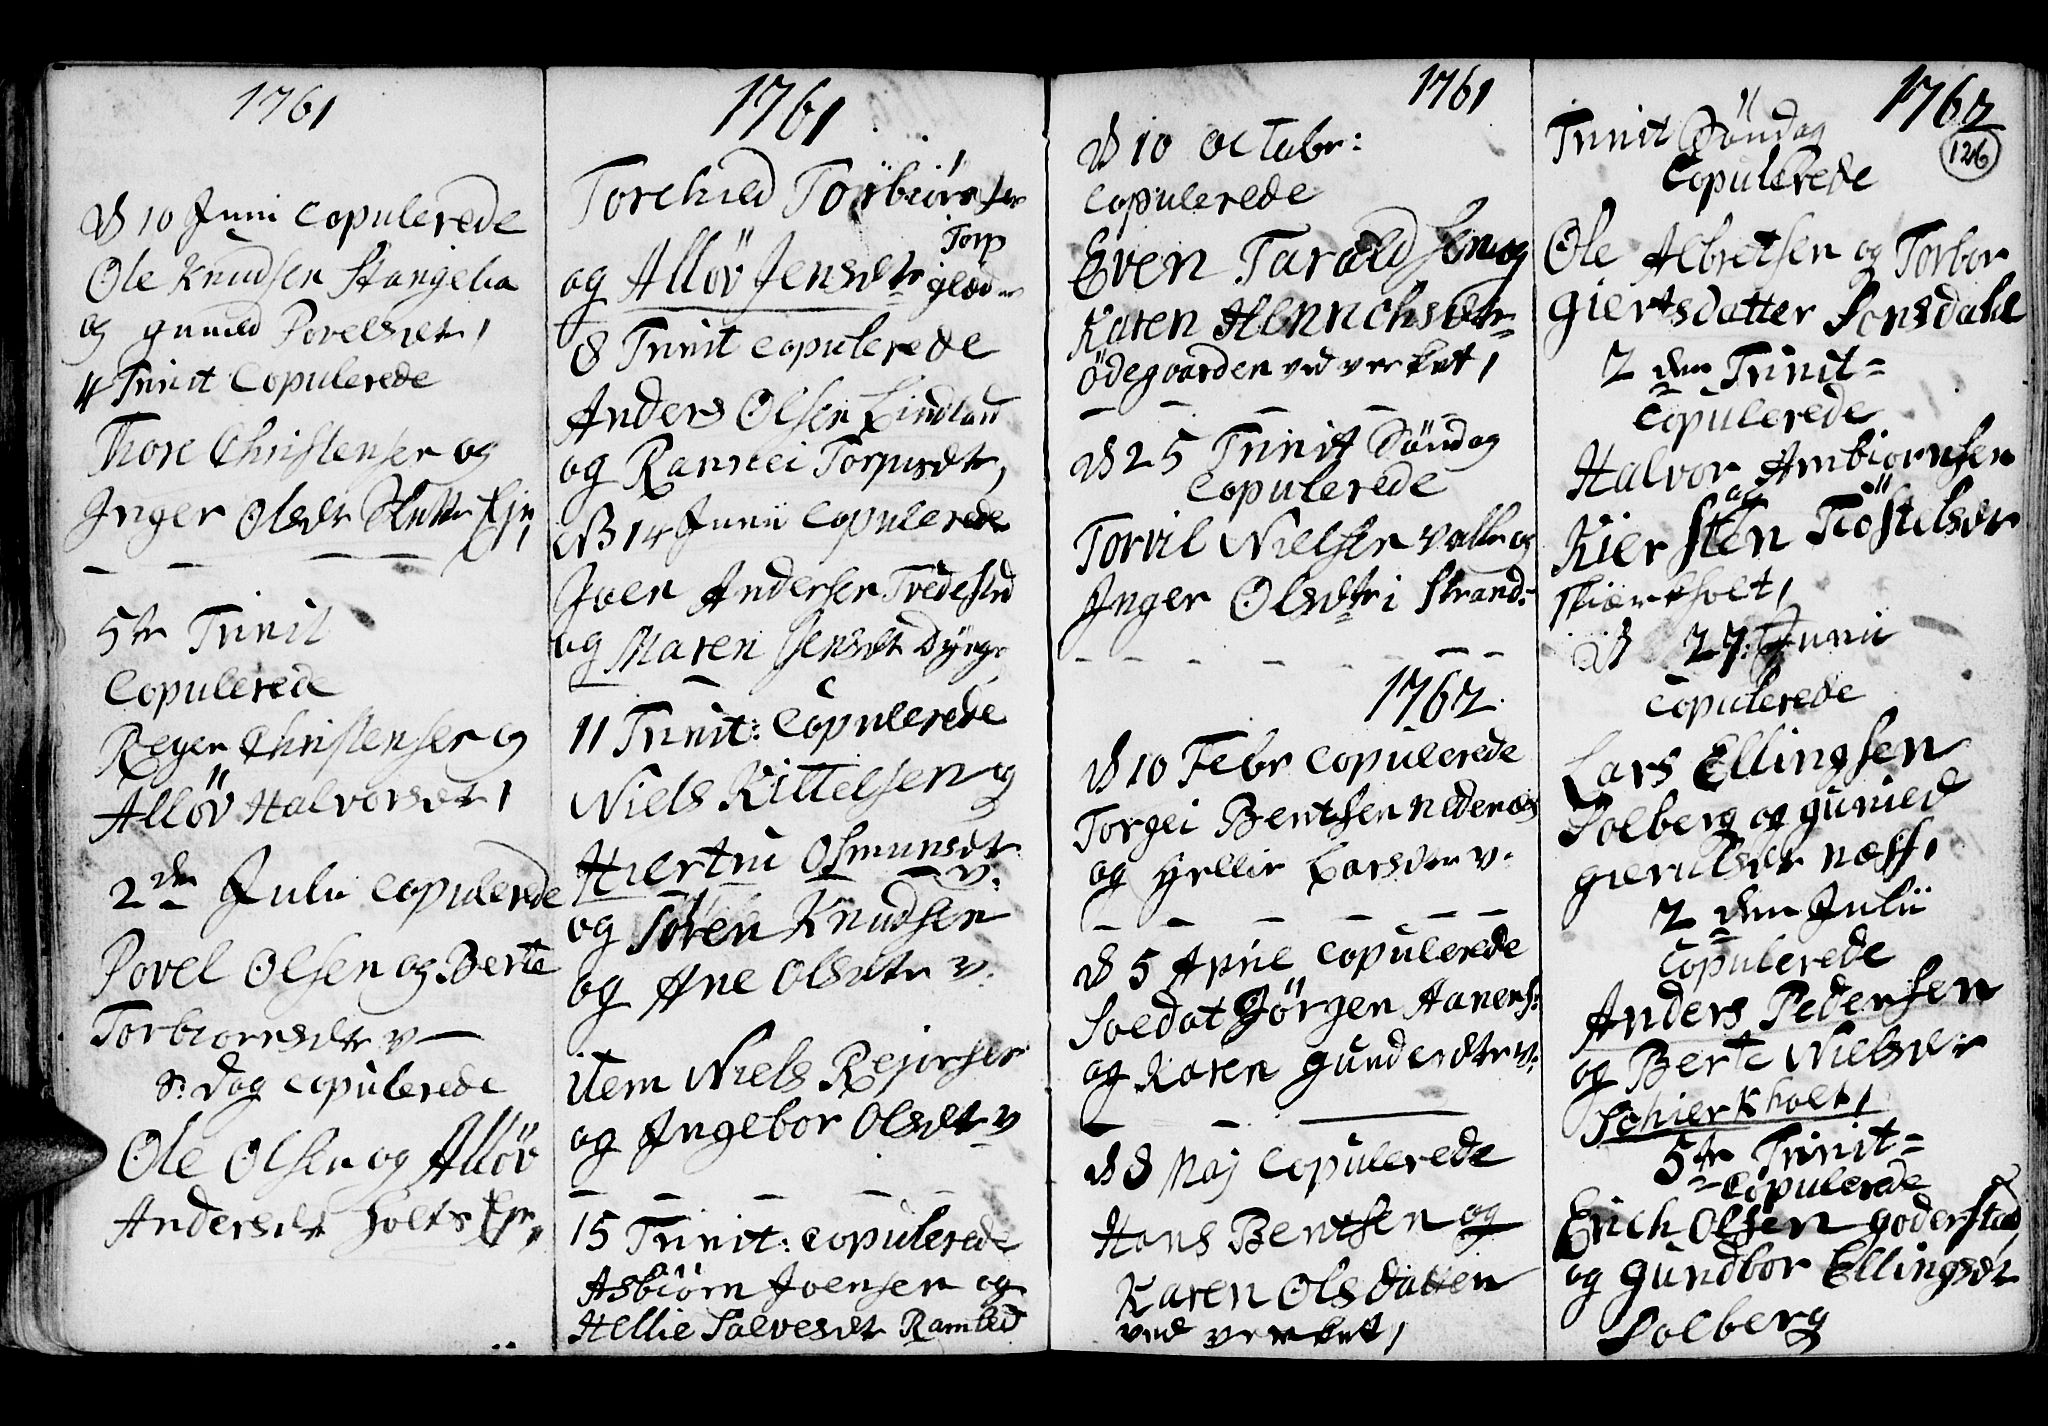 1761
D 10 Junii Copulerede
Ole Knudsen Stangelia
og guned Povelsdtr,
4 Trinit Copulerede
Thore Christenser og
Inger Olsdtr
5te Trinit
Copulerede
Reyer Christenser og
Alløv Halvorsdtr,
2den Julii Copulerede
Povel Olsen og Berte
Torbiornsdtr v
S: Dag Copulerede
Ole Olsen og Alløv
Andersdtr
1761
Torchild Torbiørnsen
Torp
og Alløv Jensdtr glød
8 Trinit Copulerede
Anders Olsen Lindland
og Rannei Torjusdtr,
D 14 Junii Copulerede
Joen Andersen Tvedested
og Maren Jensdtr Dynge
11 Trinit: Copulerede
Niels Kittelsen og
Hiertru Osmunsdtr v.
og Søren Knudsen
og Ane Olsdtr v.
item Niels Rejersen
og Ingebor Olsdtr v
15 Trinit: Copulerede
Asbiørn Joensen og
Hellie Salvesdtr Ramled
1761
D 10 Octobr:
Copulerede
Even Taraldsen og
Karen Henrichsdtr
ødegaarden ved verket,
D 25 Trinit Søndag
Copulerede
Torvil Nielsen Valle og
Inger Olsdtr i Strand:
1762.
D 10 Febr Copulerede
Torgei Bentsen nedenæs
og Hellie Larsdtr v.
D 5 April Copulerede
Soldat Jørgen Aanens:
og Karen Gundersdtr v.
D 8 Maj Copulerede
Hans Bentsen og
Karen Olsdatter
ved verket,
1762
126
Trinit Søndag
Copulerede
Ole Albretsen og Torbor
Giertsdatter Songdahl
2 den Trinit=
Copulerede
Halvor Ambiornsen
og
Kiersten Tiøstelsdtr
Skiærkholt,
D 27: Junii
Copulerede
Lars Ellingsen
Solberg og guned
gierulsdtr næss,
2 den Julii
Copulerede
Anders Pedersen
og Berte Nielsdtr
Schierkholt,
5te Trinit=
Copulerede
Erich Olsen goderstad
og gundbor Ellingsdtr
Solberg